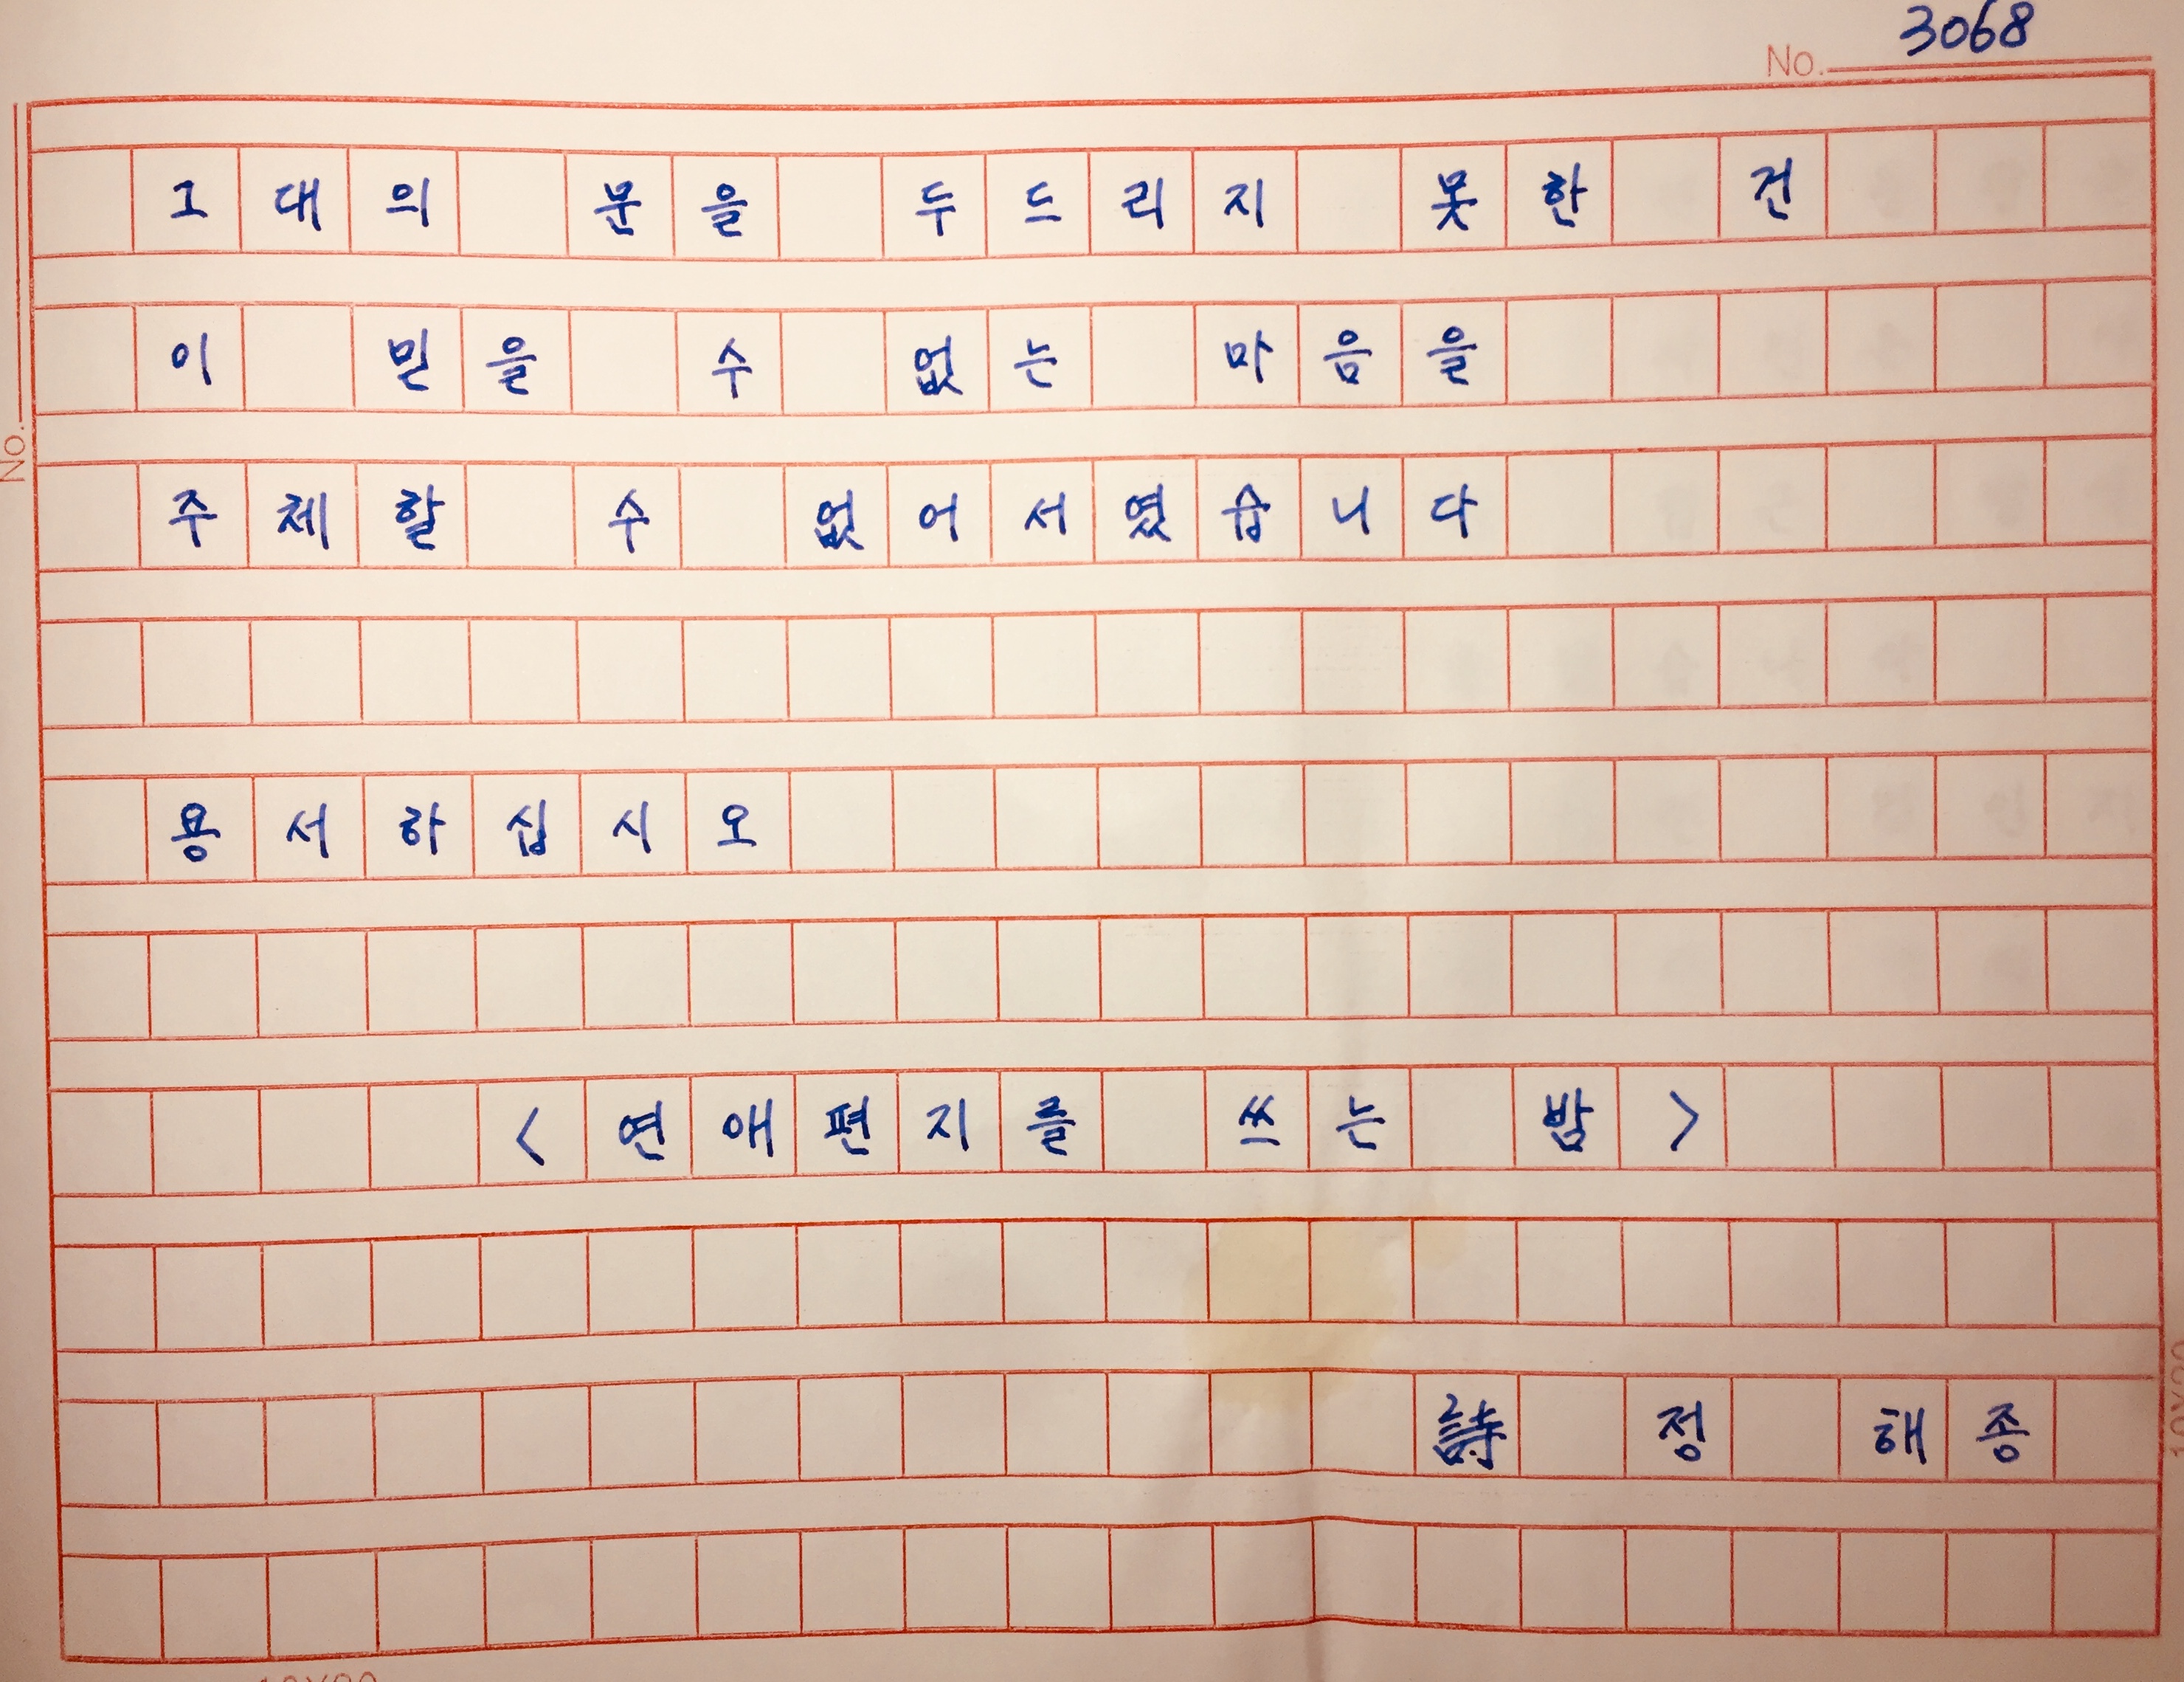 No. 3068
그대의 문을 두드리지 못한 건
이 믿을 수 없는 마음을
주체할 수 없어서였습니다
용서하십시오
<연애편지를 쓰는 밤>
詩 정 해종
No.